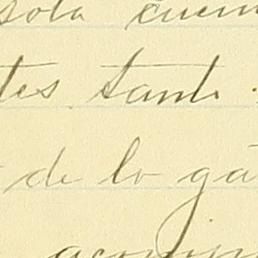 sola cuen
tes tanto
de lo ga
acom